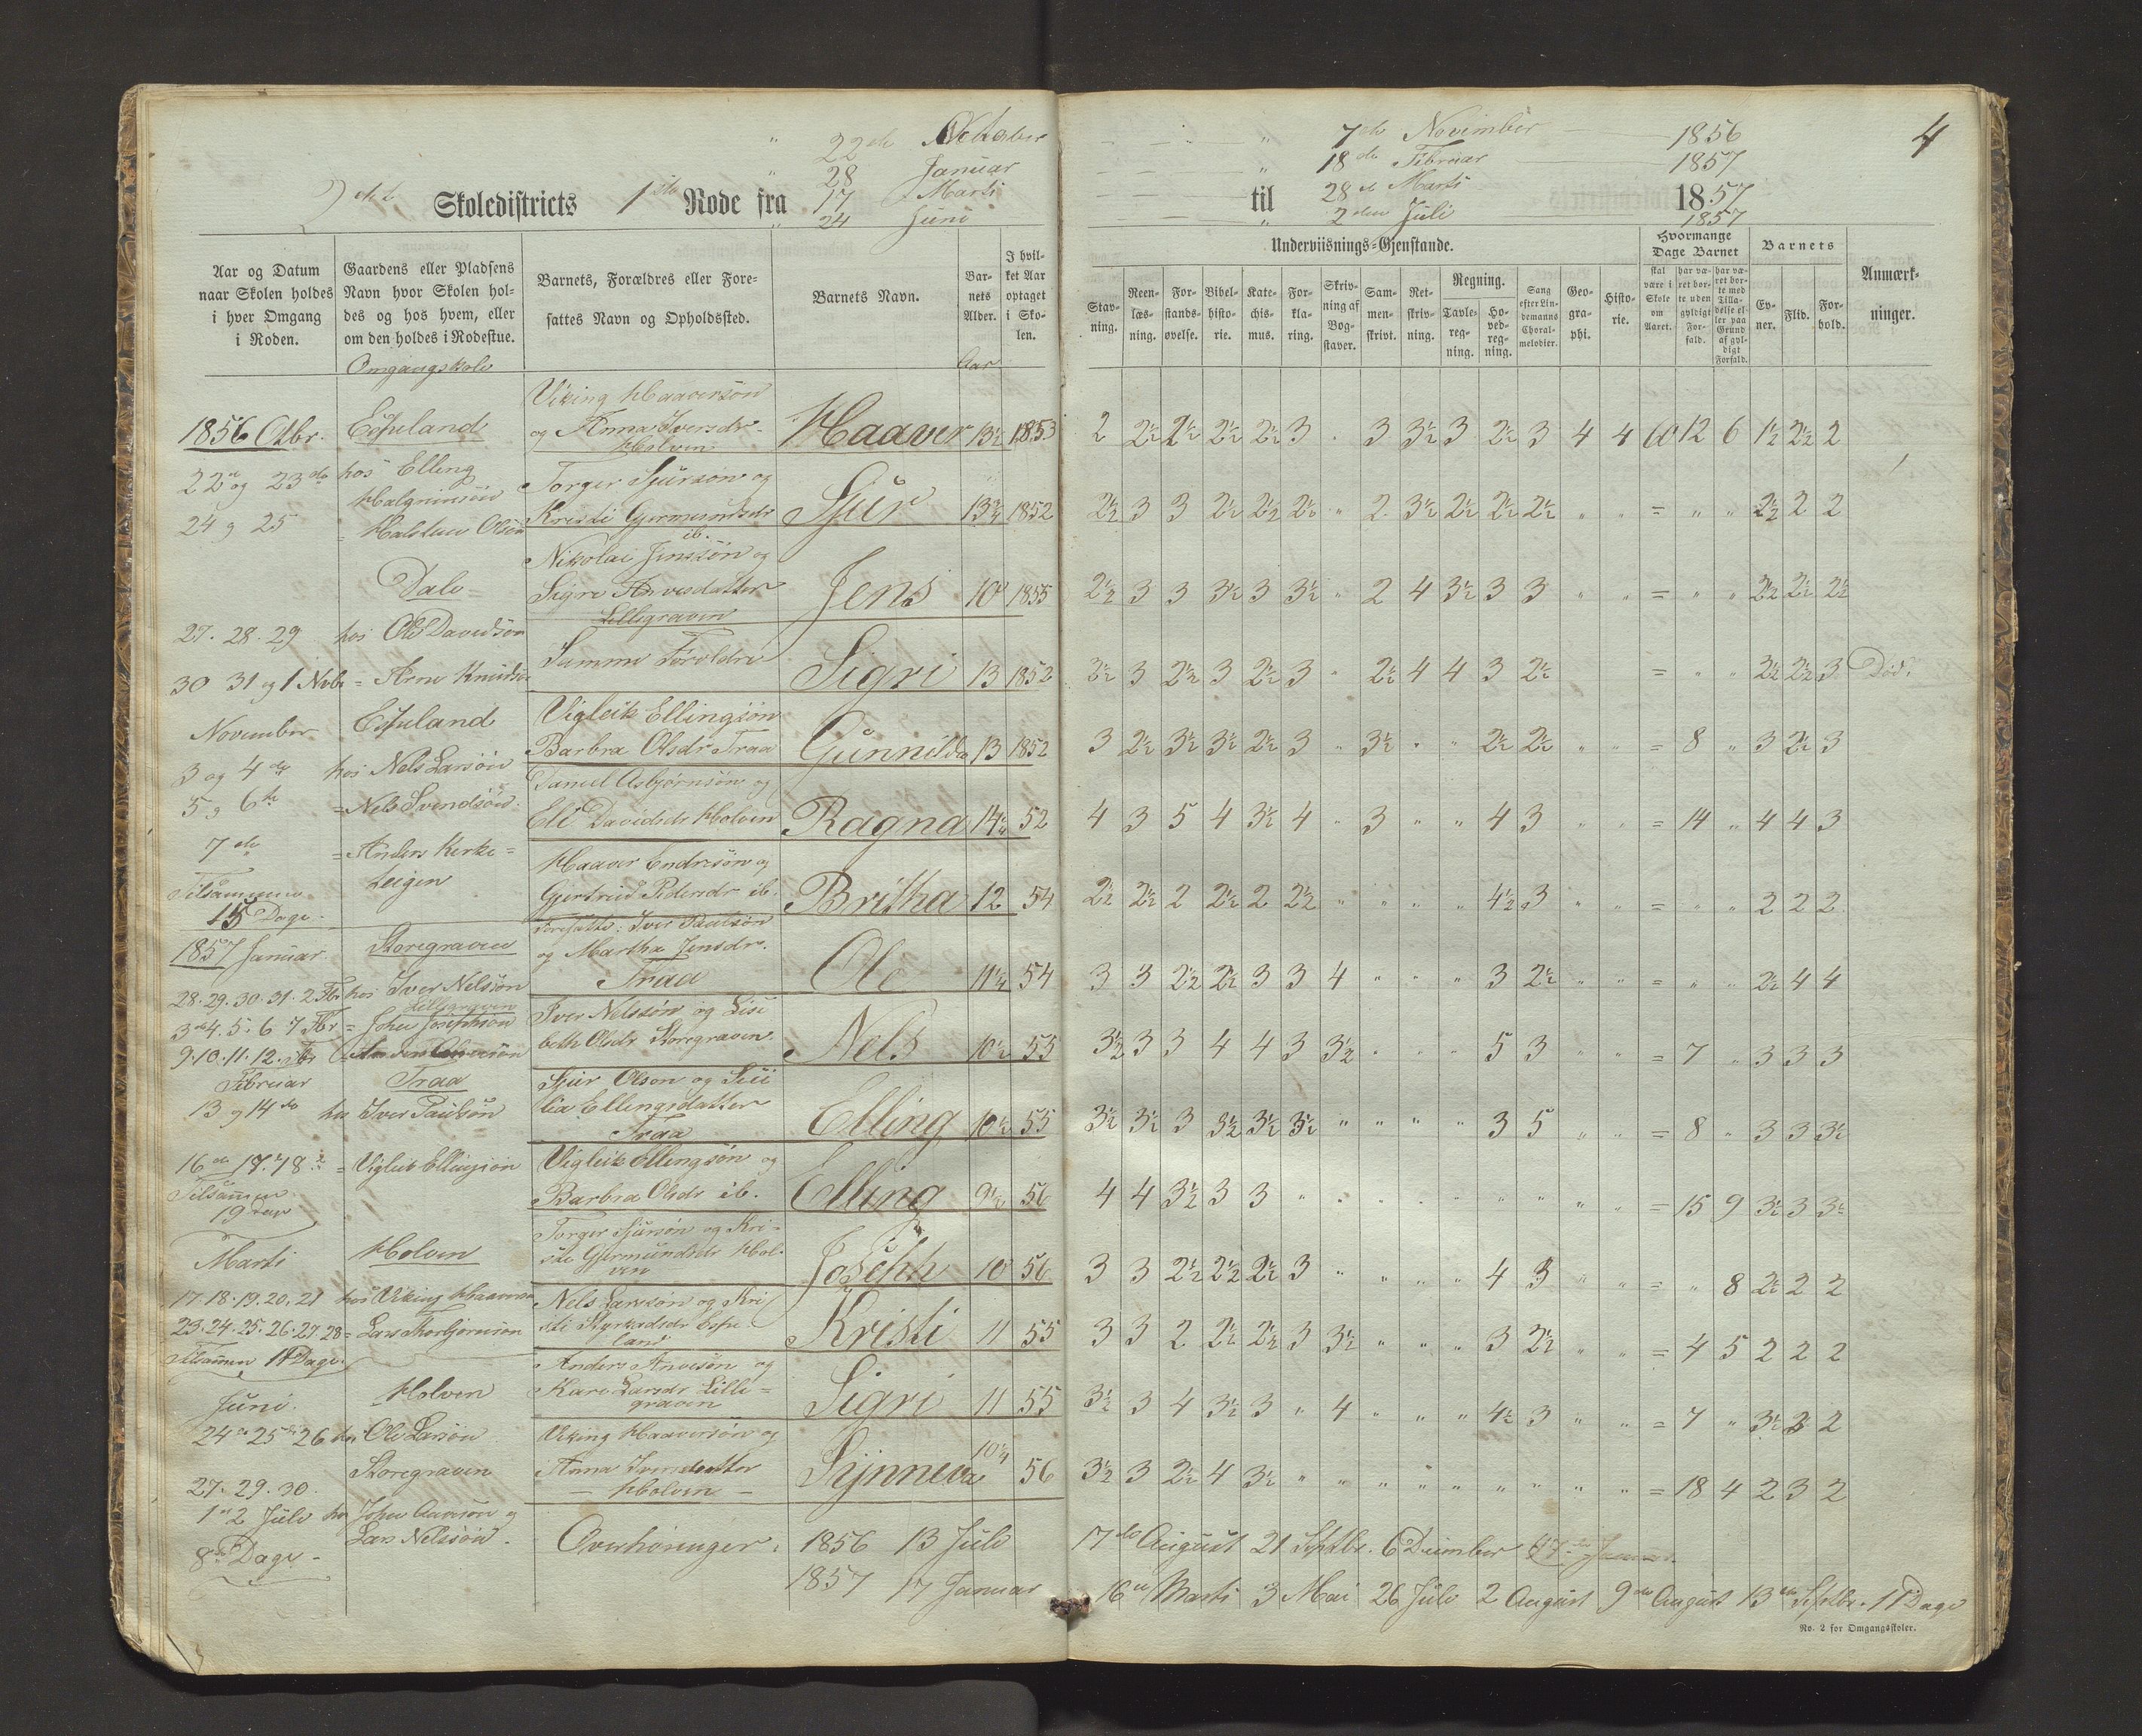 22de October — 7de November — 1856
28 Januar — 18de Februar — 1857
17 Marti — 28de Marti
2det Skoledistricts 1ste Rode fra til 1857
24 Juni — 2den Juli 1857
4
Aar og Datum naar Skolen holdes i hver Omgang i Roden.
Gaardens eller Pladsens Navn hvor Skolen holdes og hos hvem, eller om den holdes i Rodestue.
Barnets, Forældres eller Foresattes Navn og Opholdssted.
Barnets Navn.
Barnets Alder.
I hvilket Aar optaget i Skolen.
Underviisnings-Gjenstande.
Stavning.
Reenlæsning.
Forstandsøvelse.
Bibelhistorie.
Katechismus.
Forklaring.
Skrivning af Bogstaver.
Sammenskrivt.
Retskrivning.
Regning.
Tavleregning.
Hovedregning.
Sang efter Lindemanns Choralmelodier.
Geographi.
Historie.
Hvormange Dage Barnet
skal være i Skole om Aaret.
har været borte uden gyldigt Forfald.
har været borte med Tilladelse eller paa Grund af gyldigt Forfald.
Barnets
Evner.
Flid.
Forhold.
Anmærkninger.
Omgangskole
Aar
1856 Otbr.
Espeland
22de og 23de hos Elling
Halgrimsön
24 og 25 = Halsten Olsön
Dale
27. 28. 29 hos Ole Davidsön
30 31 og 1 Nvbr = Arne Knudsen
November Espeland
3 og 4de hos Nels Larsön
5 og 6te = Nels Svendsön
7de = Anders Kirke=
teigen
Tilsammen
15 Dage
1857 Januar Storegraven
28. 29. 30. 31. 2 Fbr hos Iver Nelsön
Lillegraven
3de 4. 5. 6 7 Fbr = Johan Josephsön
9. 10. 11. 12. Fbr
Februar Traa
13 og 14de hos Iver Paulsön
16de 17. 18 = Vigleik Ellingsön
Tilsammen
19 Dage
Marti Holven
17. 18. 19. 20. 21 hos Viking Haaversön
23. 24. 25. 26. 27. 28 = Lars Thorbjörnson
Tilsammen 11 Dage
Juni. Holven
24de 25 26 hos Ole Larsön
Storegraven
27. 29. 30.
1 2 Juli hos
Lars Nelssön
8 Dage
Viking Haaversön og Anna Iversdr Holven Haaver 13½ 1853 2 2½ 2½ 2½ 2½ 3 . 3 3½ 3 2½ 3 4 4 60 12 6 1½ 2½ 2
Torger Sjursön og Kristi Gjermundsdr ib. Sjur 13¾ 1852 2½ 3 3 2½ 2½ 2½ " 2 3½ 2½ 2½ 2½ " " = " " 2½ 2 2
Nikolai Jenssön og Sigri Arvesdatter Lillegraven Jens 10 1855 2½ 3 3 3½ 3 3½ " 2 4 3½ 3 3 " " = " " 2½ 2½ 2½
Samme Foreldre Sigri 13 1852 2½ 3 2½ 3 2½ 3 " 2½ 4 4 3 2½ = " " 2½ 2½ 3 Död.
Vigleik Ellingsön Barbra Olsdr Traa Gunnilda 13 1852 3 2½ 3½ 3½ 2½ 3 " 3½ " " 2½ 2½ " " = 8 " 3 2½ 3
Daniel Asbjörnsön og Eli Davidsdr Holven Ragna 14¼ 52 4 3 5 4 3½ 4 " 3 " " 4 3 " " = 14 " 4 4 3
Haaver Endresön og Gjertrud Pedersdr ib. Britha 12 54 2½ 2½ 2 2½ 2 2½ " " " " 4½ 3 " " = " " 2 2 2
Foresatte: Iver Paulsön og Martha Jensdr. Traa Ole 11¼ 54 3 3 2½ 2½ 3 3 4 " " " 3 2½ " " = " " 2½ 4 4
Iver Nelssön og Lisibeth Olsdr Storegraven Nels 10½ 55 3½ 3 3 4 4 3 3½ " " " 5 3 " " = 7 " 3 3 3
Sjur Olson og Ellingsdatter Traa Elling 10½ 55 3½ 3½ 3 3½ 3½ 3½ " " " " 3 5 " " = 8 " 3 3 3½
Vigleik Ellingsön og Barbra Olsdr ib. Elling 9½ 56 4 4 3½ 3 3 " " " " " " " " " = 15 9 3½ 3 3½
Torger Sjursön og Kristi Gjermundsdr Holven Joseph 10 56 3 3 2½ 2½ 2½ 3 " " " " 4 3 " " = " 8 2½ 2 2
Nels Larssön og Kristi Styrkadsdr Espeland Kristi 11 55 3 3 2 2½ 2½ 3 3½ " " " 3 2½ " " = 4 5 2 2 2
Anders Arvesön og Kari Larsdr Lillegraven Sigri 11 55 3½ 3 4 3½ 3 " 4 " " " 4½ 3 " " = 7 " 3½ 2 2
Viking Haaversön og Anna Iversdatter Holven Synneva 10¼ 56 3½ 3 2½ 4 3½ " " " " " " " " " = 18 4 2 3 2
Overhöringer. 1856 13 Juli 17de August 21 Septbr. 6 December
1857 17 Januar 16de Marti 3 Mai 26 Juli 2 August 9de August 13de Septbr. 11 Dage
No. 2 for Omgangsskoler.